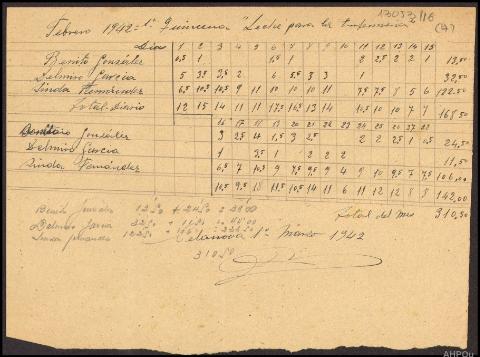 13053/16
(4)
Febrero 1942 = 1ª Quincena "Leche para la Enfermeria"
Dia 1 2 3 4 5 6 7 8 9 10 11 12 13 14 15
Benito González 0,5 1 1,5 1 2 2,5 2 2 1
Delmiro Garcia 5 3,5 3,5 2 6 5,5 3 3 1
Sinda Fernández 6,5 10,5 10,5 9 11 10 10 10 11 7,5 7,5 8 5 6 122,50
Total Diario 12 15 14 11 11 17,5 16,5 13 14 10,5 10 10 7 7 168,50
16 17 18 19 20 21 22 23 24 25 26 27 28
González 3 2,5 4 1,5 3 2,5 2 2 2,5 1 0,5 24,50
Delmiro Garcia 1 3,5 1 2 2 2 11,50
Sinda Fernández 6,5 7 10,5 9 7,5 9,5 9 4 9 10 9,5 7 7,5 106,00
10,5 9,5 18 11,5 14 11 6 11 12 12 8 8 142,00
Total del mes 310,50
Benito González
Delmiro Garcia
Sinda Fernández
Celanova 1º Marzo 1942
310,50
AHPOu